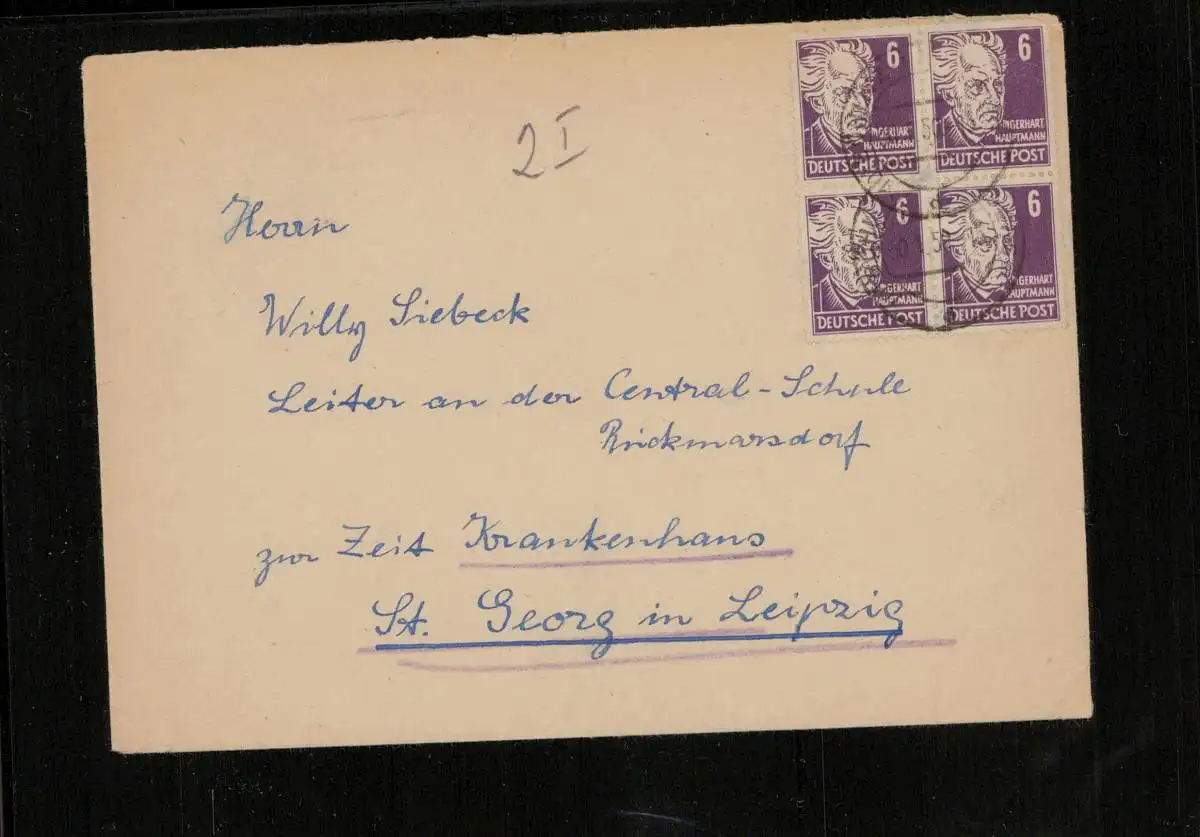 2 I
6
6
INGERHART
HAUPTMANN
DEUTSCHE POST
INGERHART
HAUPTMANN
DEUTSCHE POST
6
6
INGERHART
HAUPTMANN
DEUTSCHE POST
INGERHART
HAUPTMANN
DEUTSCHE POST
Herrn
Willy Siebeck
Leiter an der Central-Schule
Rückmarsdorf
zur Zeit Krankenhaus
St. Georg in Leipzig